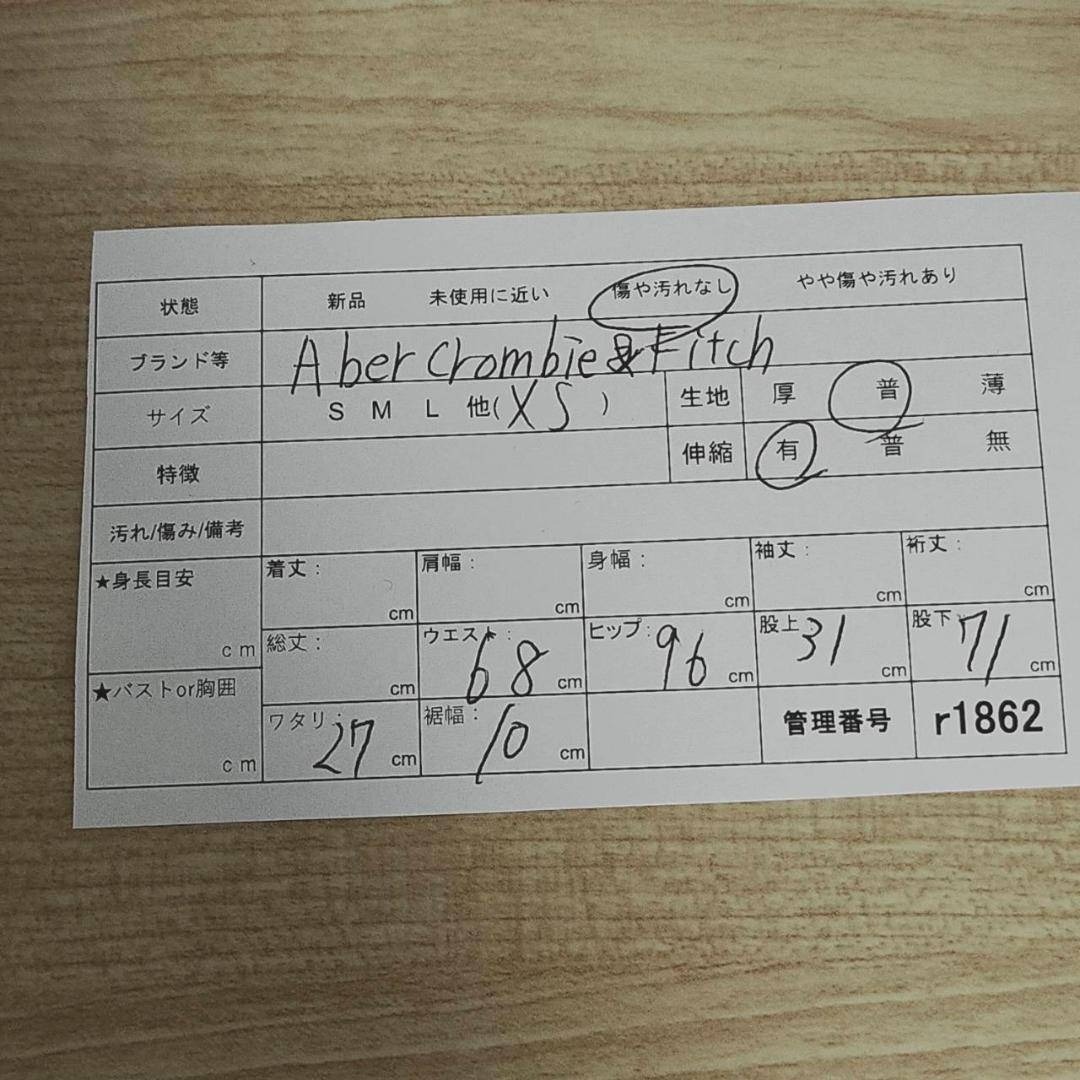 状態 新品 未使用に近い 傷や汚れなし やや傷や汚れあり
ブランド等 AberCrombie&Fitch
サイズ S M L 他(XS) 生地 厚 普 薄
特徴 伸縮 有 普 無
汚れ/傷み/備考
★身長目安 cm 着丈: cm 肩幅: cm 身幅: cm 袖丈: cm 裄丈: cm
総丈: cm ウエスト: 68 cm ヒップ: 96 cm 股上: 31 cm 股下: 71 cm
★バストor胸囲 cm ワタリ: 27 cm 裾幅: 10 cm 管理番号 r1862